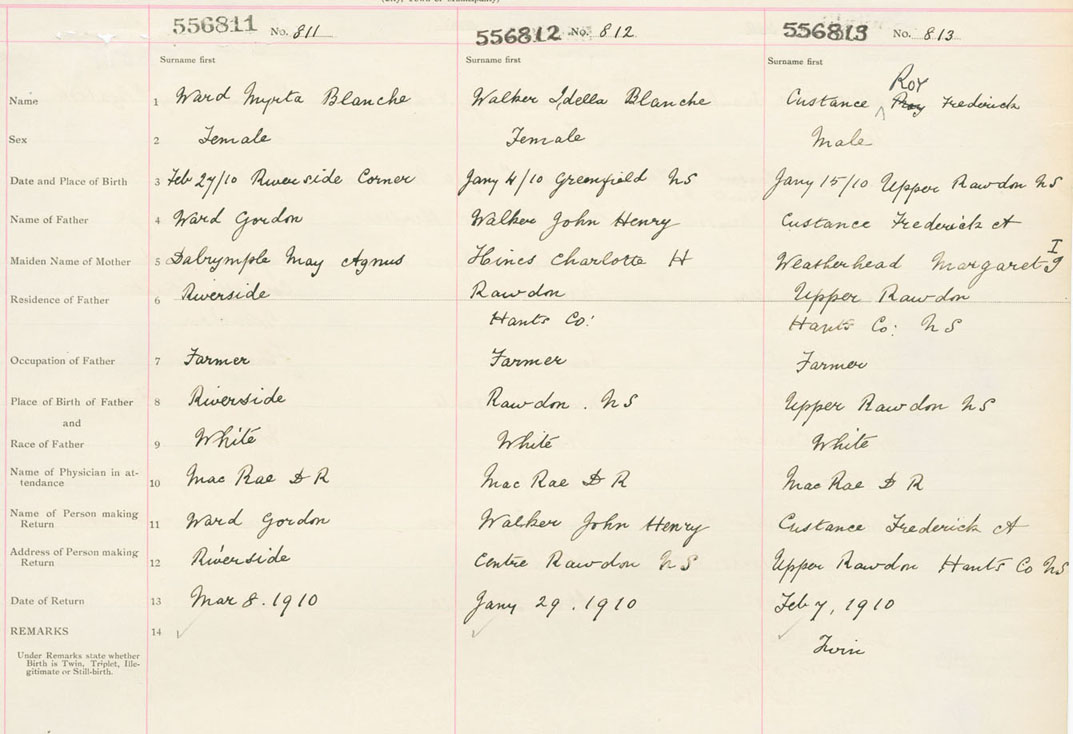 (City, Town or Municipality)
556811 No. 811 556812 No. 812 556813 No. 813
Surname first Surname first Surname first
Roy
Name 1 Ward Myrta Blanche Walker Idella Blanche Custance ^ Frederick
Sex 2 Female Female Male
Date and Place of Birth 3 Feb 27/10 Riverside Corner Jany 4/10 Greenfield NS Jany 15/10 Upper Rawdon NS
Name of Father 4 Ward Gordon Walker John Henry Custance Frederick A
I
Maiden Name of Mother 5 Dalrymple May Agnus Hines Charlotte H Weatherhead Margaret J
Residence of Father 6 Riverside Rawdon Upper Rawdon
Hants Co: Hants Co: NS
Occupation of Father 7 Farmer Farmer Farmer
Place of Birth of Father 8 Riverside Rawdon . NS Upper Rawdon NS
and
Race of Father 9 White White White
Name of Physician in at-
tendance 10 Mac Rae D R Mac Rae D R Mac Rae D R
Name of Person making
Return 11 Ward Gordon Walker John Henry Custance Frederick A
Address of Person making
Return 12 Riverside Centre Rawdon NS Upper Rawdon Hants Co NS
Date of Return 13 Mar 8 . 1910 Jany 29 . 1910 Feb 7, 1910
REMARKS 14
Under Remarks state whether
Birth is Twin, Triplet, Ille-
gitimate or Still-birth.
Twin